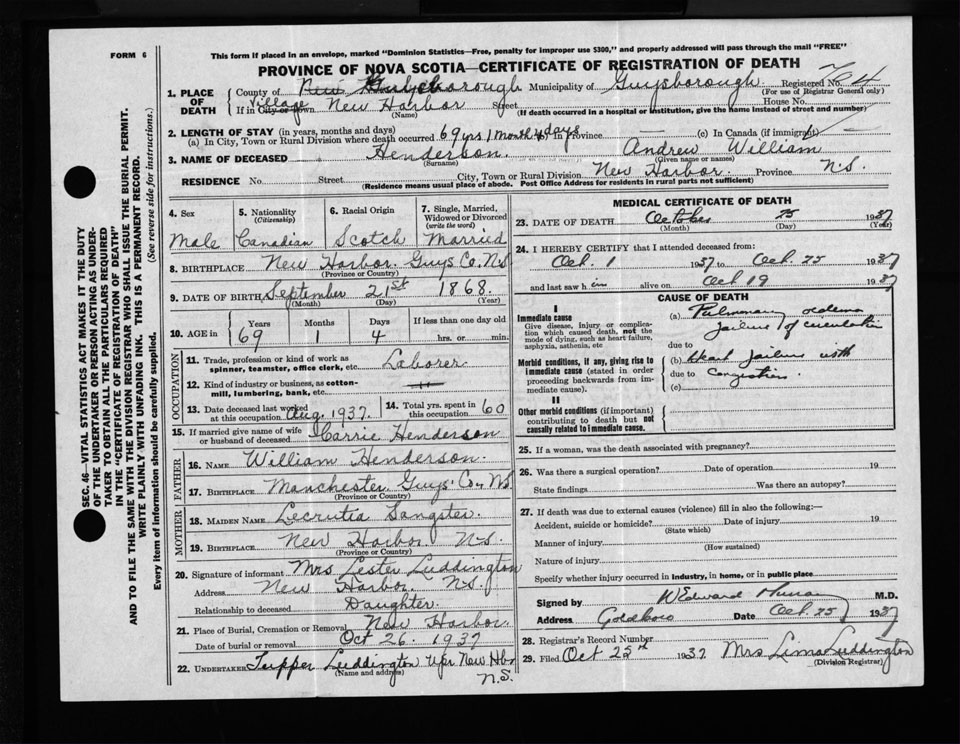 FORM 6
This form if placed in an envelope, marked "Dominion Statistics—Free, penalty for improper use $300," and properly addressed will pass through the mail "FREE"
PROVINCE OF NOVA SCOTIA—CERTIFICATE OF REGISTRATION OF DEATH
SEC. 46—VITAL STATISTICS ACT MAKES IT THE DUTY
OF THE UNDERTAKER OR PERSON ACTING AS UNDER-
TAKER TO OBTAIN ALL THE PARTICULARS REQUIRED
IN THE "CERTIFICATE OF REGISTRATION OF DEATH"
AND TO FILE THE SAME WITH THE DIVISION REGISTRAR WHO SHALL ISSUE THE BURIAL PERMIT.
WRITE PLAINLY WITH UNFADING INK. THIS IS A PERMANENT RECORD.
Every item of information should be carefully supplied. (See reverse side for instructions.)
1. PLACE OF DEATH County of Guysborough Municipality of Guysborough Registered No.
(For use of Registrar General only)
Village If in City or Town New Harbor Street House No.
(Name) (If death occurred in a hospital or institution, give the name instead of street and number)
2. LENGTH OF STAY (in years, months and days)
(a) In City, Town or Rural Division where death occurred 69 yrs 1 month 4 days In Province — (c) In Canada (if immigrant) —
3. NAME OF DECEASED Henderson. Andrew William
(Surname) (Given name or names)
RESIDENCE No. Street City, Town or Rural Division New Harbor. Province N.S.
(Residence means usual place of abode. Post Office Address for residents in rural parts not sufficient)
4. Sex 5. Nationality (Citizenship) 6. Racial Origin 7. Single, Married, Widowed or Divorced (write the word)
Male Canadian Scotch Married
8. BIRTHPLACE New Harbor. Guys Co. N.S
(Province or Country)
9. DATE OF BIRTH September 21st 1868.
(Month) (Day) (Year)
10. AGE in Years Months Days If less than one day old
69 1 4 hrs. or min.
OCCUPATION
11. Trade, profession or kind of work as
spinner, teamster, office clerk, etc. Laborer
12. Kind of industry or business, as cotton-
mill, lumbering, bank, etc.
13. Date deceased last worked at this occupation Aug. 1937. 14. Total yrs. spent in this occupation 60
15. If married give name of wife or husband of deceased Carrie Henderson
FATHER
16. NAME William Henderson.
17. BIRTHPLACE Manchester Guys' Co. N.S
(Province or Country)
MOTHER
18. MAIDEN NAME Lecrutia Sangster.
19. BIRTHPLACE New Harbor N.S.
(Province or Country)
20. Signature of informant Mrs Lester Luddington
Address New Harbor N.S.
Relationship to deceased Daughter.
21. Place of Burial, Cremation or Removal New Harbor.
Date of burial or removal Oct 26. 1937
22. UNDERTAKER Tupper Luddington Upr New Hbr
(Name and address) N.S.
MEDICAL CERTIFICATE OF DEATH
23. DATE OF DEATH October 25 1937
(Month) (Day) (Year)
24. I HEREBY CERTIFY that I attended deceased from:
Oct. 1 1937 to Oct. 25 1937
and last saw h im alive on Oct 19 1937
CAUSE OF DEATH
I
Immediate cause
Give disease, injury or complica-
tion which caused death, not the
mode of dying, such as heart failure,
asphyxia, asthenia, etc
(a) Pulmonary oedema
failure of circulation
due to
Morbid conditions, if any, giving rise to
immediate cause (stated in order
proceeding backwards from im-
mediate cause).
(b) Heart failure with
due to congestion.
(c)
II
Other morbid conditions (if important)
contributing to death but not
causally related to immediate cause.
25. If a woman, was the death associated with pregnancy?
26. Was there a surgical operation? Date of operation 19
State findings Was there an autopsy?
27. If death was due to external causes (violence) fill in also the following:—
Accident, suicide or homicide? Date of injury 19
(State which)
Manner of injury
(How sustained)
Nature of injury
Specify whether injury occurred in industry, in home, or in public place
Signed by W Edward M.D.
Address Goldboro Date Oct. 25 1937
28. Registrar's Record Number
29. Filed Oct 25th 1937 Mrs Lima Luddington
(Division Registrar)